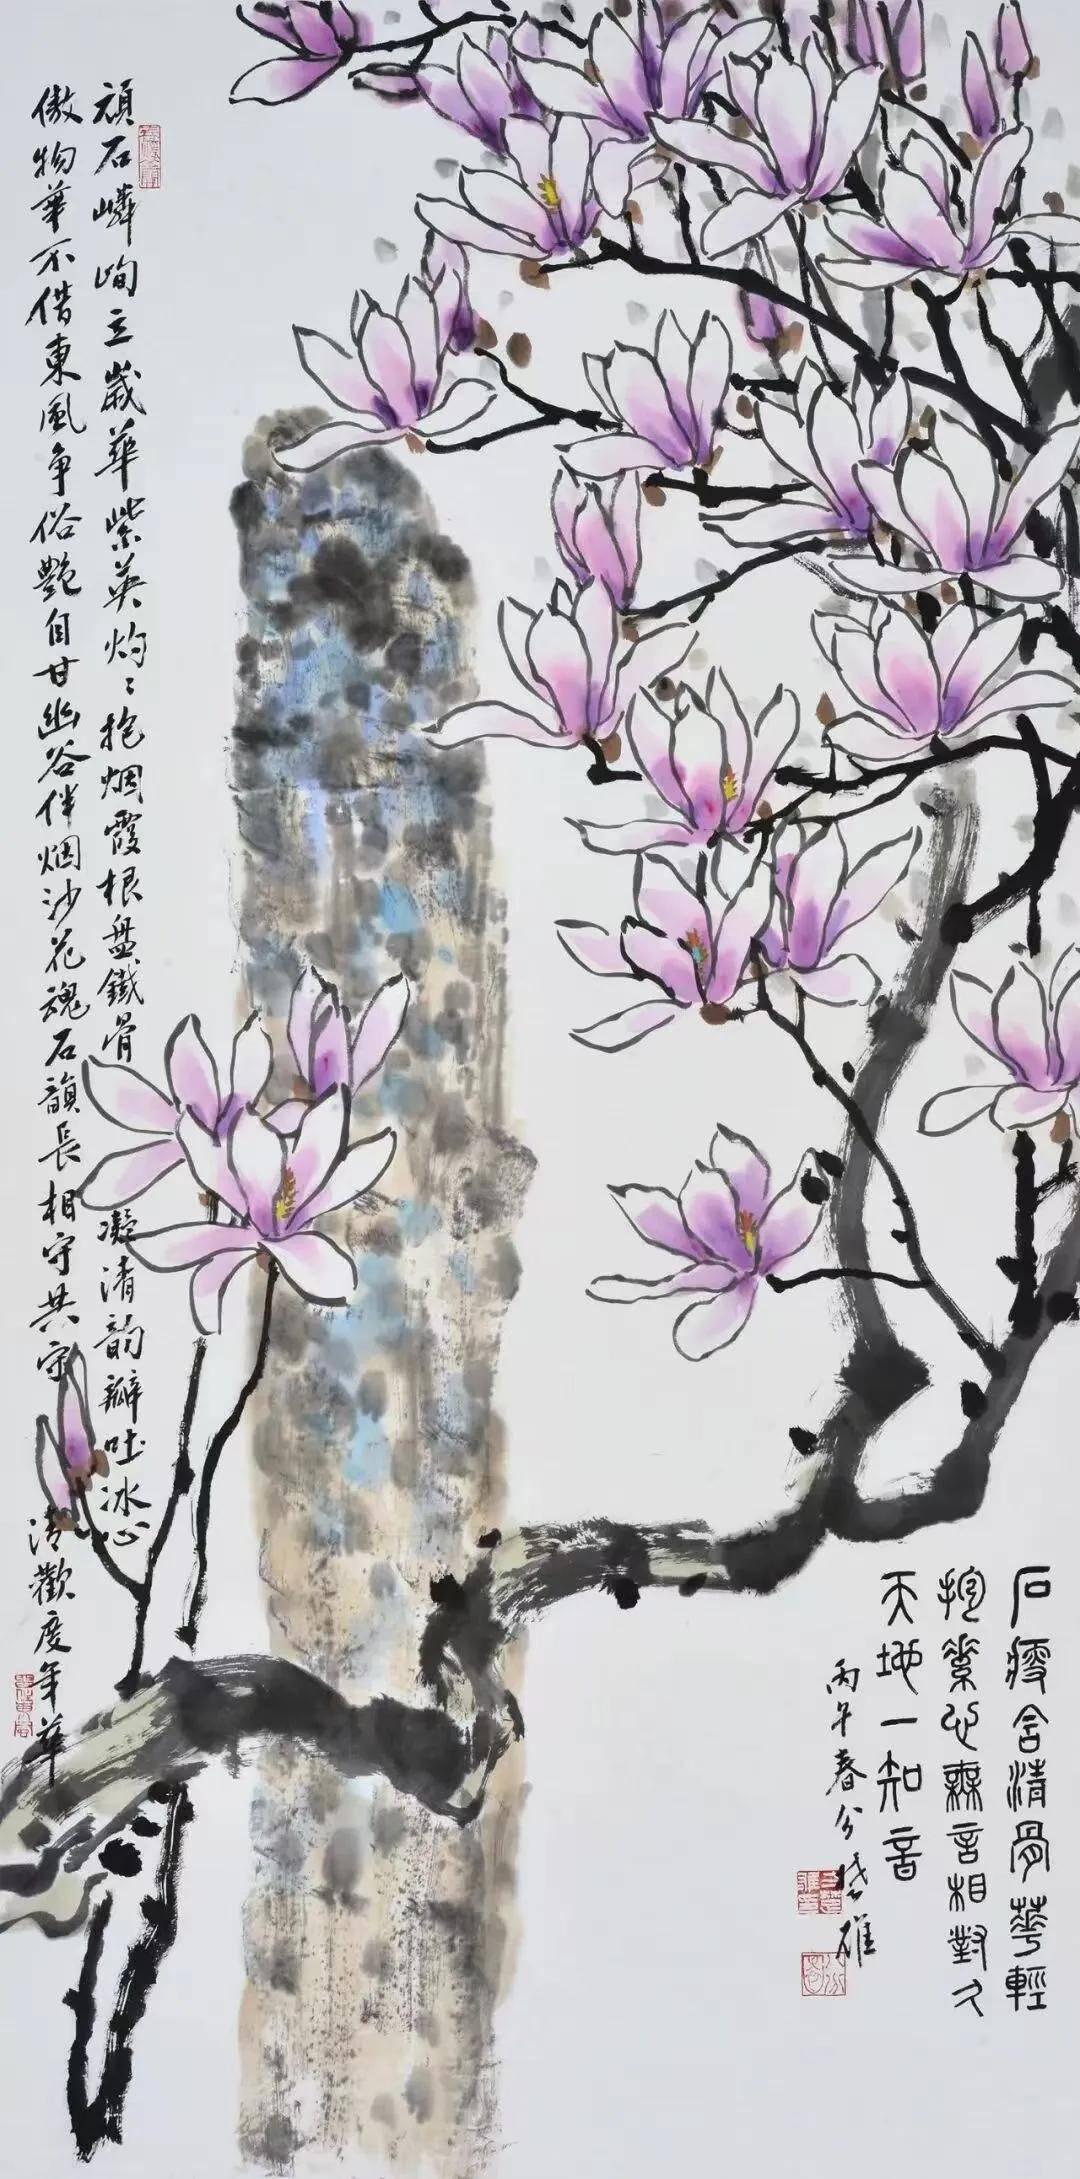 石瘦含清骨華輕
抱素心無言相對久
天地一知音
丙午春分 雄
頑石嶙峋立歲華紫英灼〻抱烟霞根盤鐵骨凝清韵瓣吐冰心
傲物華不借東風争俗艷自甘幽谷伴烟沙花魂石韻長相守共守清歡度年華